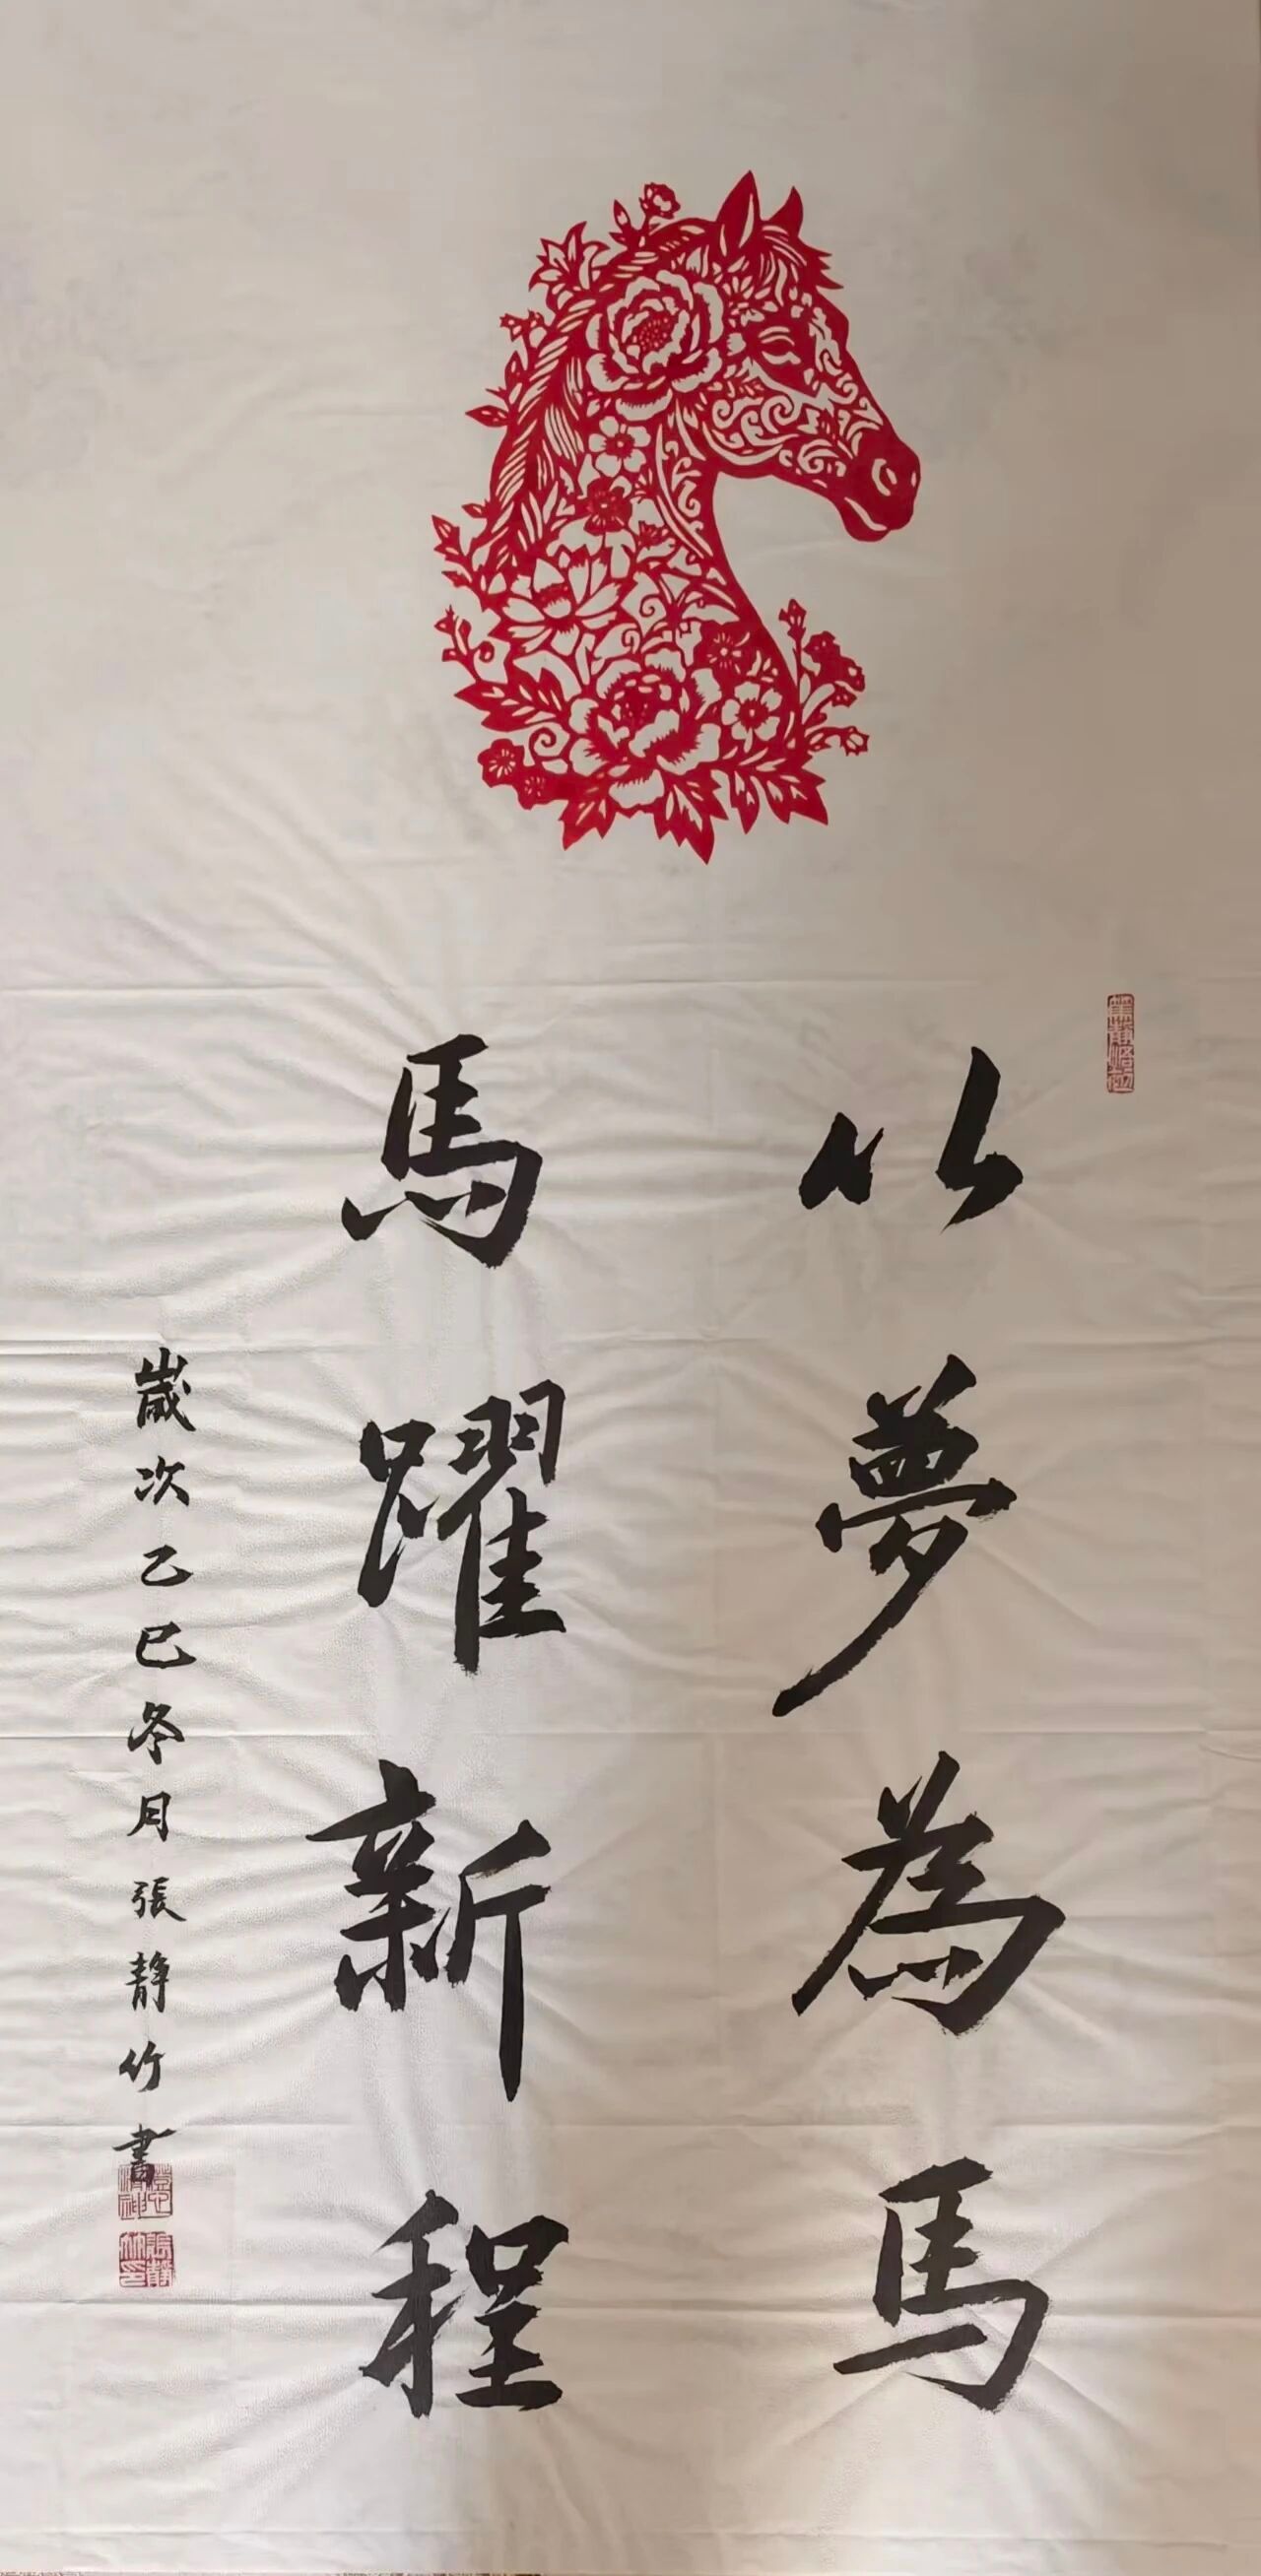 以夢為馬
馬躍新程
歲次乙巳冬月張静竹書